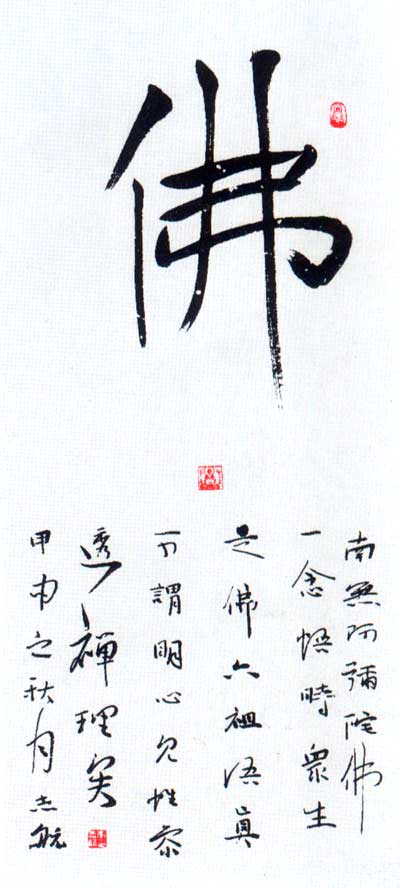 佛
南無阿彌陀佛
一念悟時眾生
是佛六祖語真
可謂明心見性參
透禪理矣
甲申之秋月志航